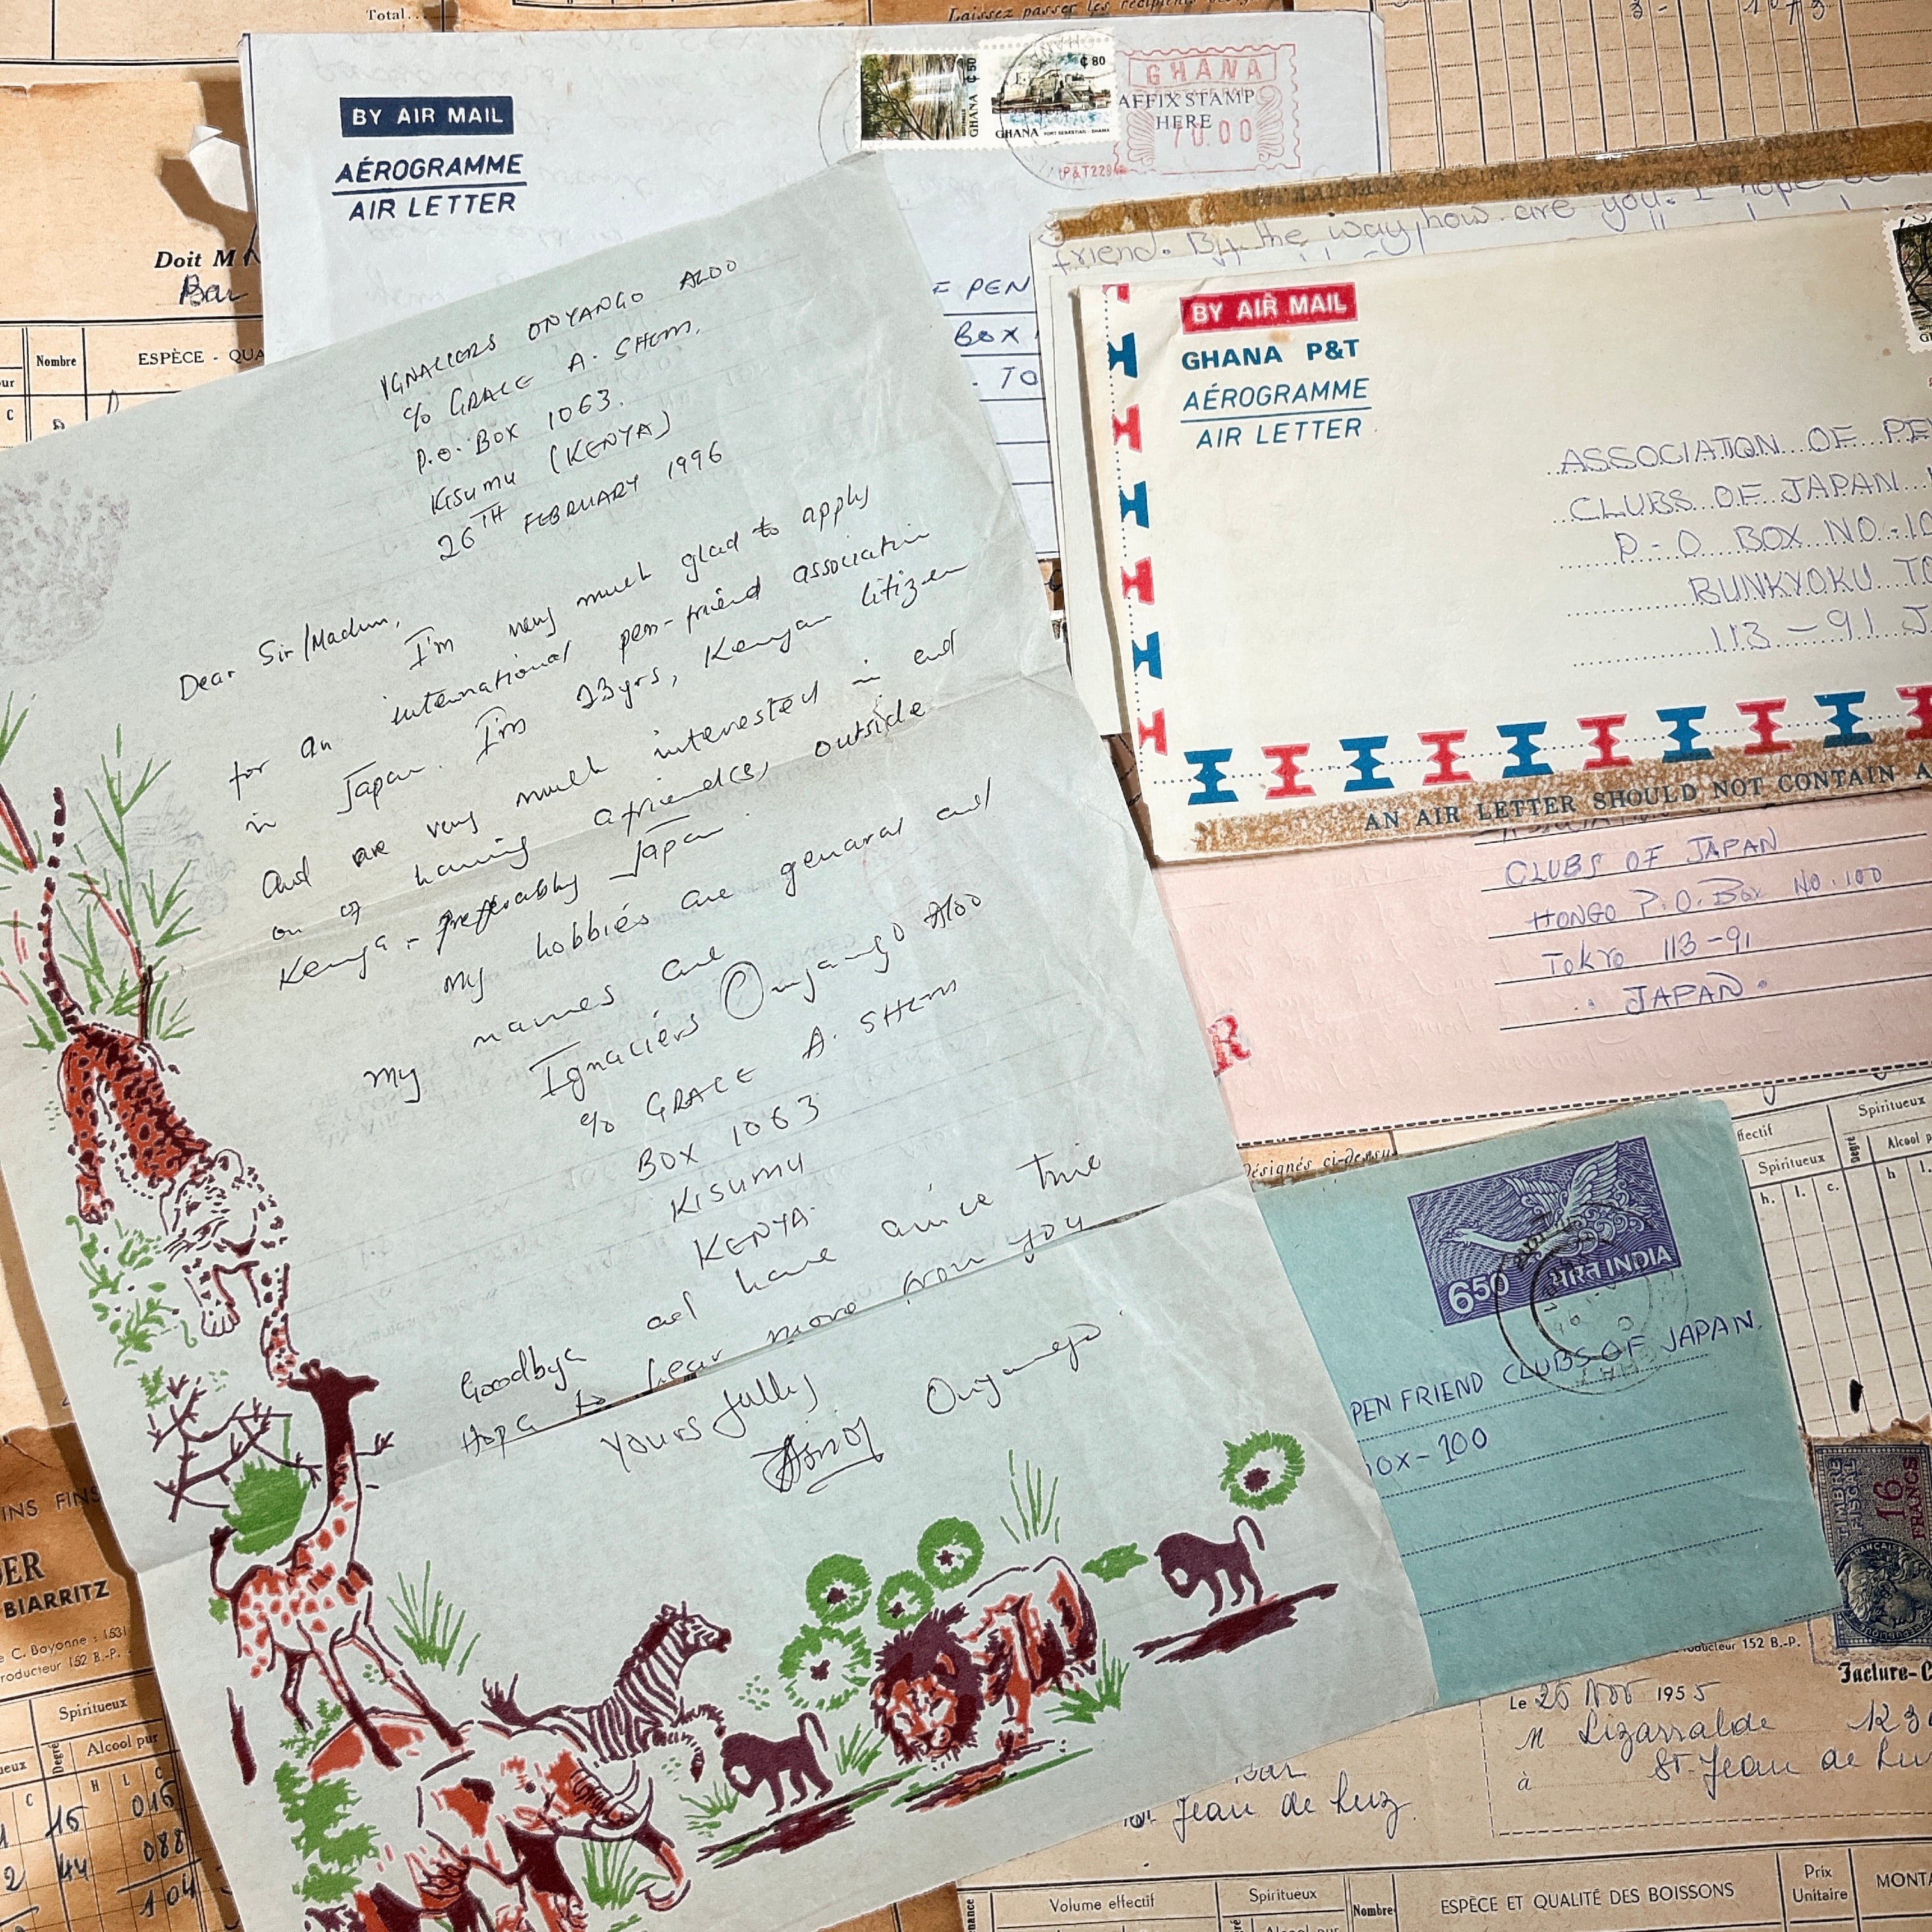 Total...
Laissez passer les récipients
BY AIR MAIL
AÉROGRAMME
AIR LETTER
GHANA ₵50
₵80
GHANA FORT SEBASTIAN - SHAMA
GHANA
AFFIX STAMP
HERE
70.00
Doit M
Bar
Nombre
ESPÈCE - QUA
C
F PEN
BOX
. TO
friend. By the way, how are you. I hope
BY AIR MAIL
GHANA P&T
AÉROGRAMME
AIR LETTER
ASSOCIATION OF PE
CLUBS OF JAPAN
P-O BOX NO-10
BUNKYOKU TO
113-91 J
AN AIR LETTER SHOULD NOT CONTAIN A
CLUBS OF JAPAN
HONGO P.O. Box NO. 100
Tokyo 113-91
JAPAN.
R
IGNACIERS ONYANGO ALOO
c/o GRACE A. SHEM,
P.O. BOX 1063.
KISUMU (KENYA)
26TH FEBRUARY 1996
Dear Sir/Madam,
I'm very much glad to apply
for an international pen-friend association
in Japan. I'm 23yrs, Kenyan Citizen
and are very much interested in and
on of having afriend(s) outside
Kenya - preferably Japan.
My hobbies are genaral and
my names are
Ignaciérs Onyango Aloo
c/o GRACE A. SHEM
BOX 1063
KISUMU
KENYA.
Goodbye ad have anice time
Hope to hear more from you
Yours fully
Onyango
désignés ci-dessus
650
भारत INDIA
PEN FRIEND CLUBS OF JAPAN.
OX-100
Spiritueux
Effectif
Degré
Alcool p
Spiritueux
h. l. c.
h l.
TIMBRE
FISCAL
16
FRANCS
INS FINS
DER
BIARRITZ
C. Bayonne : 1531
roducteur 152 B.-P.
Spiritueux
Degré
Alcool pur
C
H L C
15 016
2 44 088
1 04
ducteur 152 B.-P.
Facture-C
Le 25 Nov 1955
M Lizarralde
à St-Jean de Lu
Bar
St Jean de Luz
Volume effectif
Spiritueux
Nombre
ESPÈCE ET QUALITÉ DES BOISSONS
Prix
Unitaire
MONTA
Alcool pur